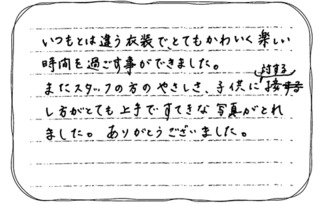 いつもとは違う衣装で、とてもかわいく楽しい
時間を過ごす事ができました。
またスタッフの方のやさしさ、子供に対する接
し方がとても上手ですてきな写真がとれ
ました。ありがとうございました。